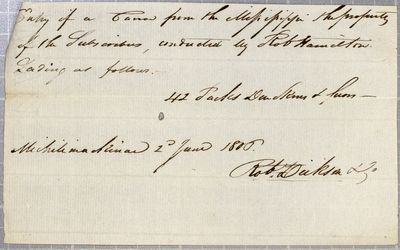 Entry of a Canoe from the Missisippi the property
of the Subscribers, conducted by Rob Hamilton.
Lading as follows.
42 Packs Deer Skins & furs —
Michilimackinac 2d June 1806.
Robt Dickson & Co